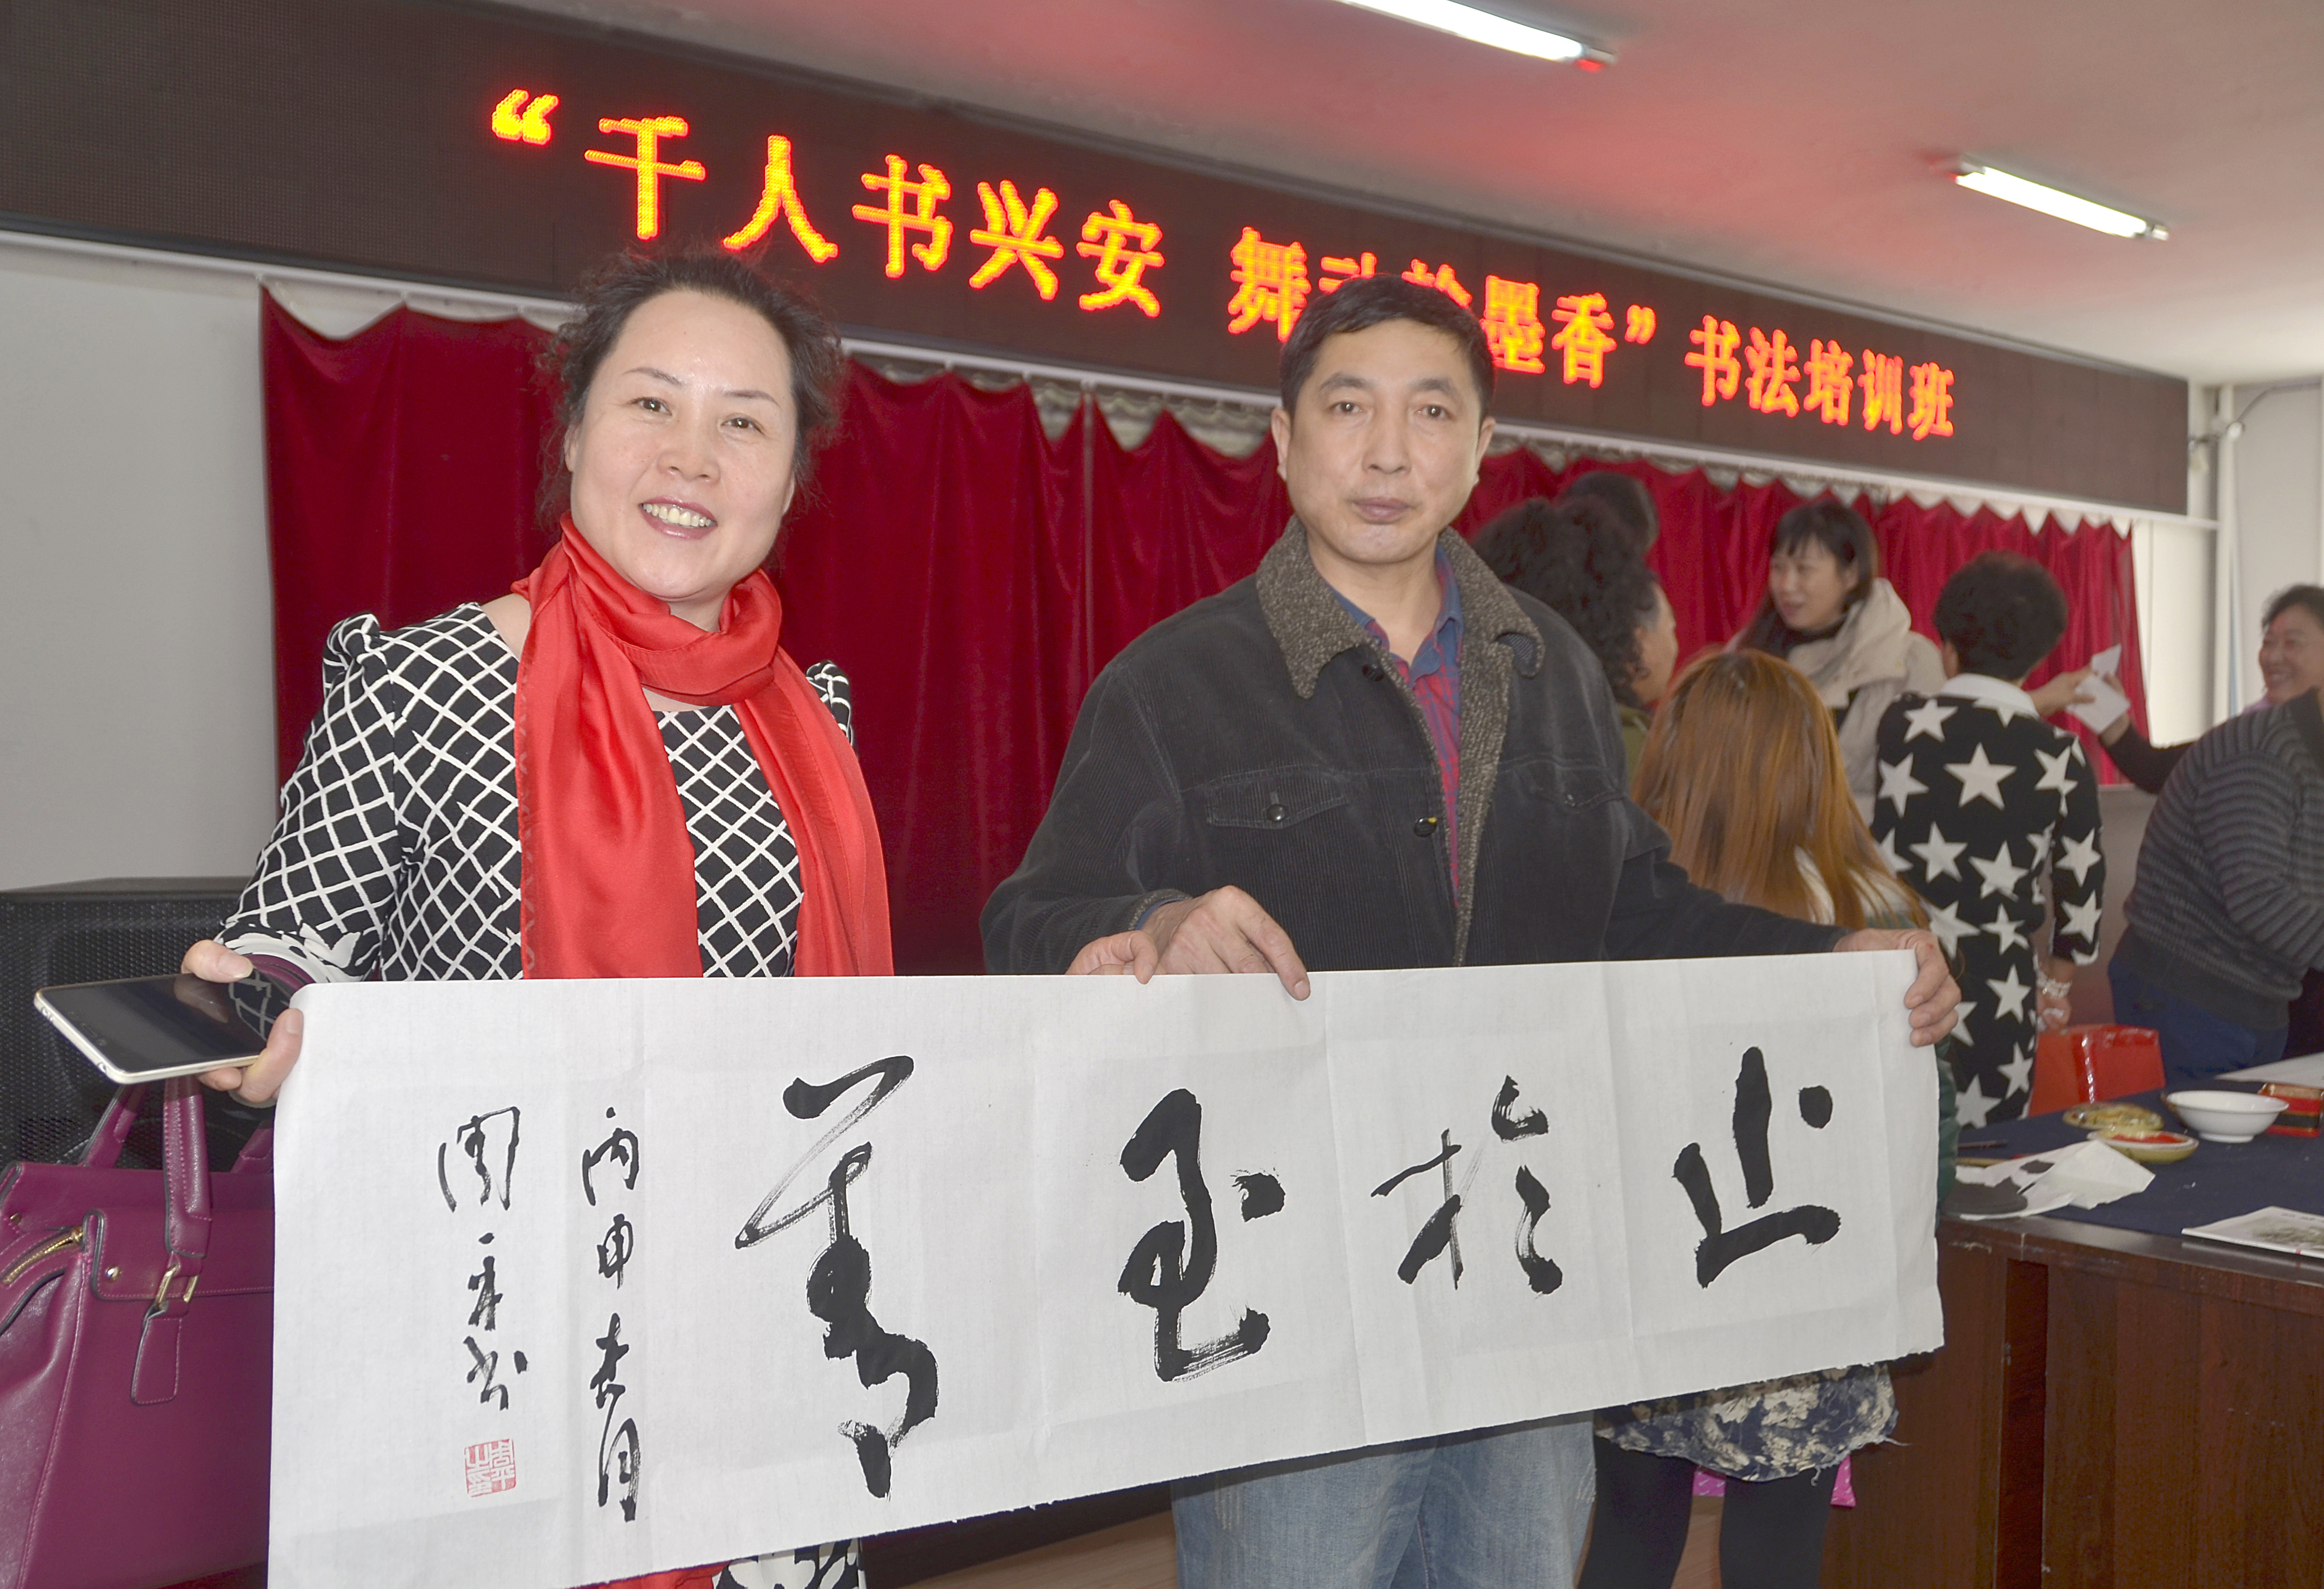 “千人书兴安 舞动翰墨香”书法培训班
止於至善
丙申春月
周平书